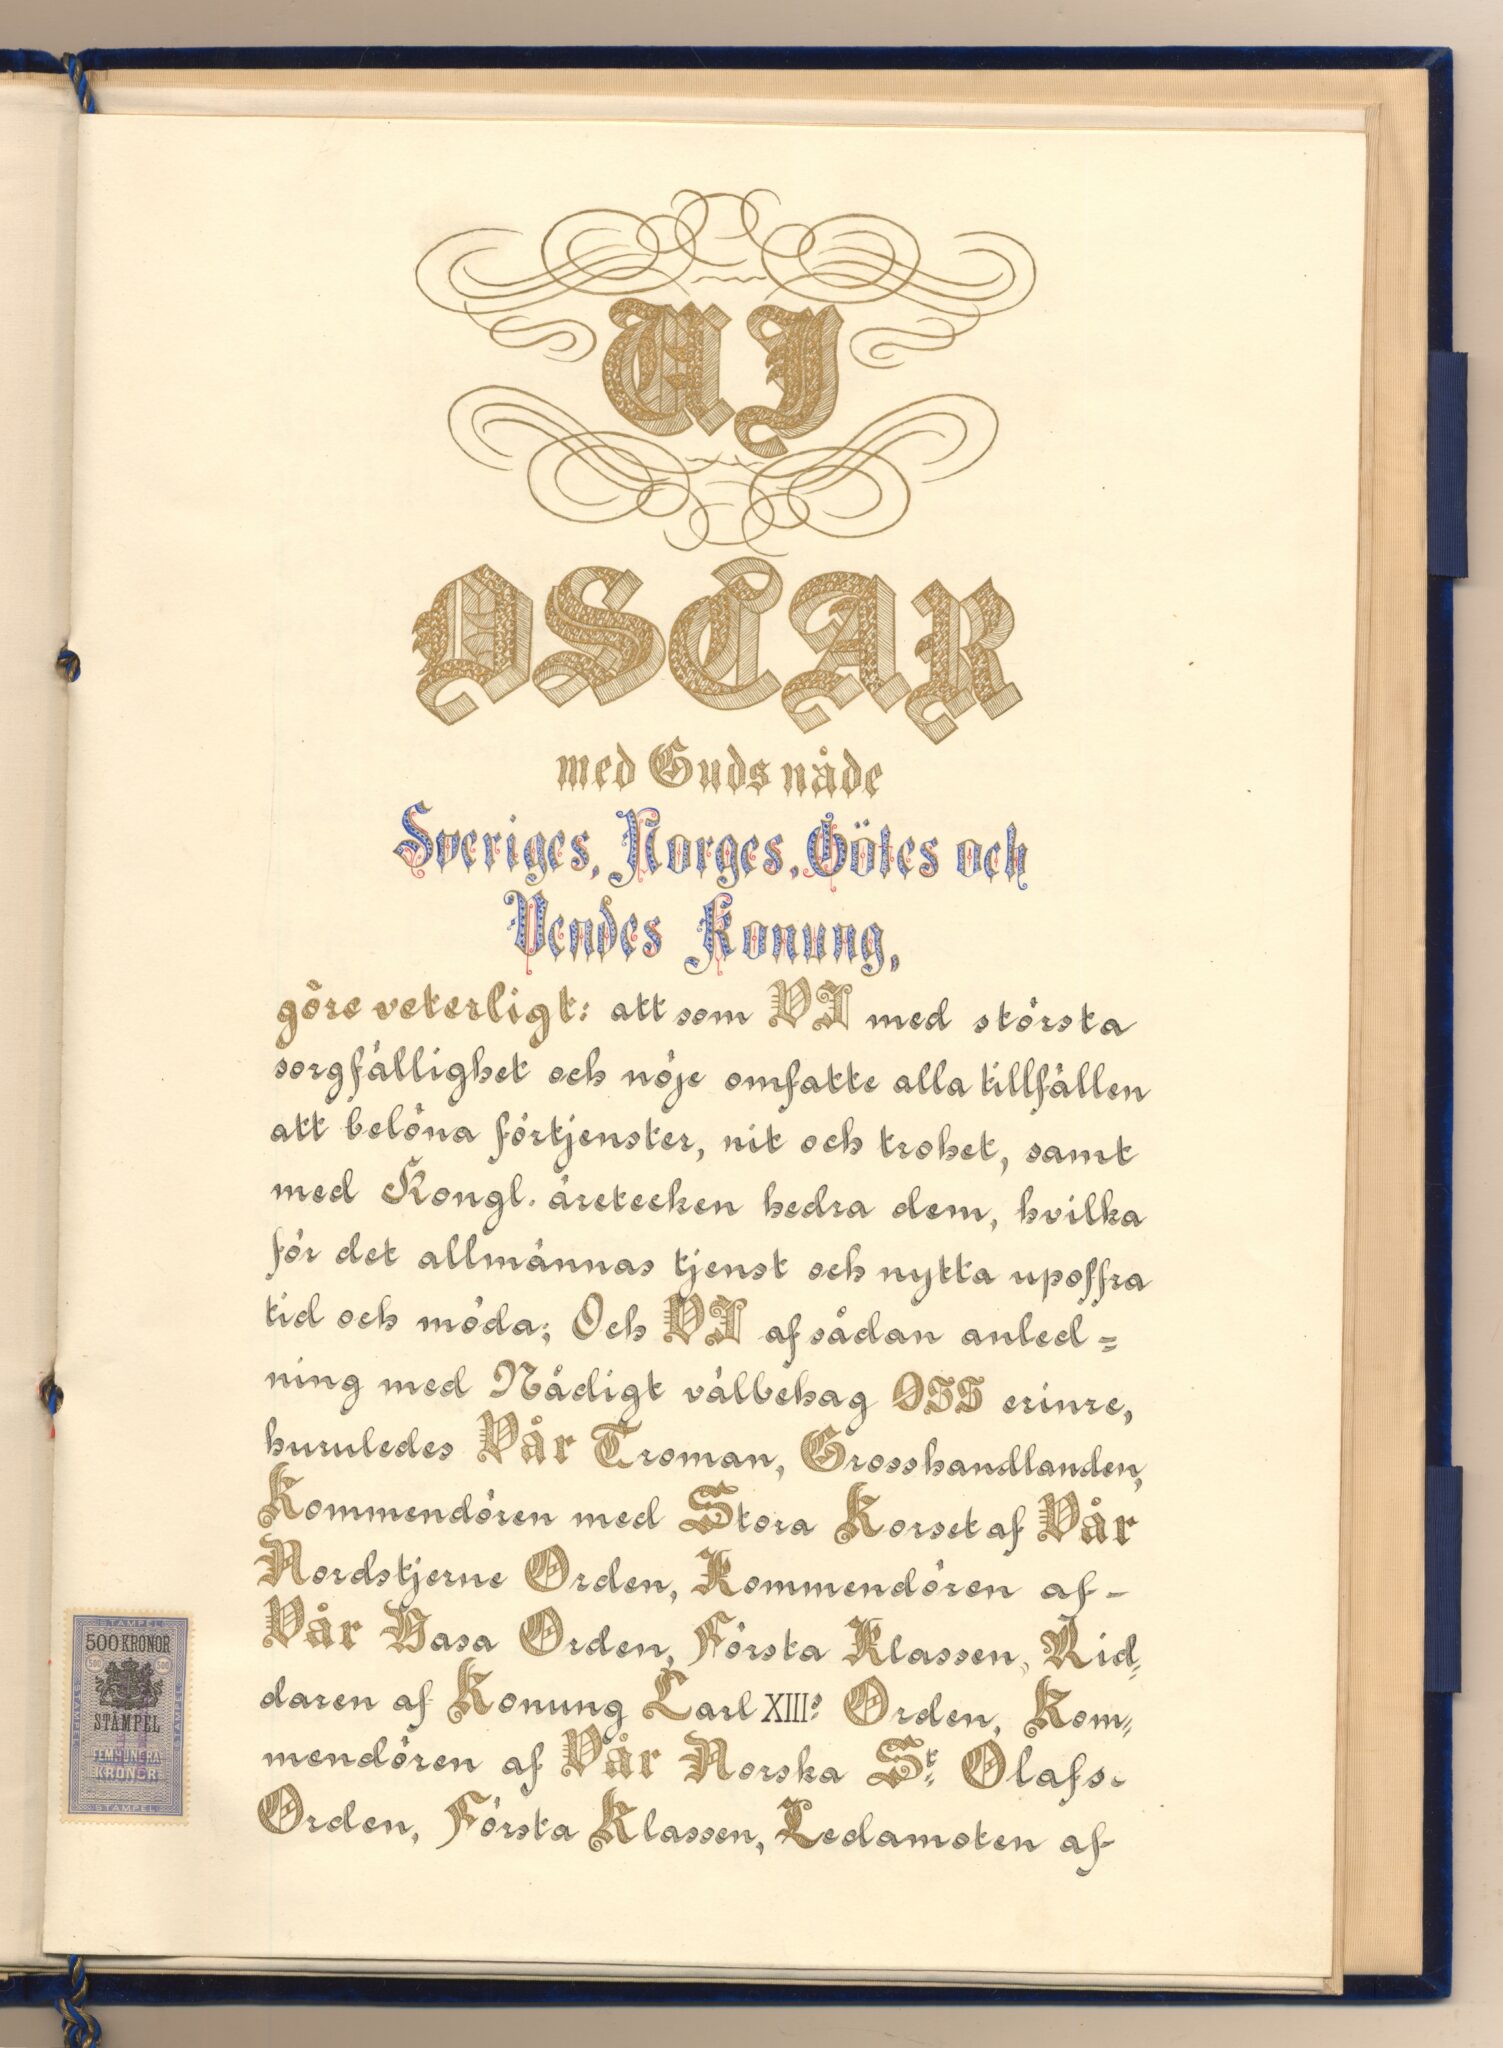 VI
OSCAR
med Guds nåde
Sveriges, Norges, Götes och
Vendes Konung,
göre veterligt: att som VI med största
sorgfällighet och nöje omfatte alla tillfällen
att belöna förtjenster, nit och trohet, samt
med Kongl. äretecken hedra dem, hvilka
för det allmännas tjenst och nytta upoffra
tid och möda; Och VI af sådan anled=
ning med Nådigt välbehag OSS erinre,
huruledes Vår Troman, Grosshandlanden,
Kommendören med Stora Korset af Vår
Nordstjerne Orden, Kommendören af-
Vår Wasa Orden, Första Klassen, Rid=
daren af Konung Carl XIIIs Orden, Kom=
mendören af Vår Norska St. Olafs-
Orden, Första Klassen, Ledamoten af
STAMPEL
500 KRONOR
500 500
STÄMPEL
STÄMPEL
STÄMPEL
FEMHUNDRA
KRONOR
STÄMPEL